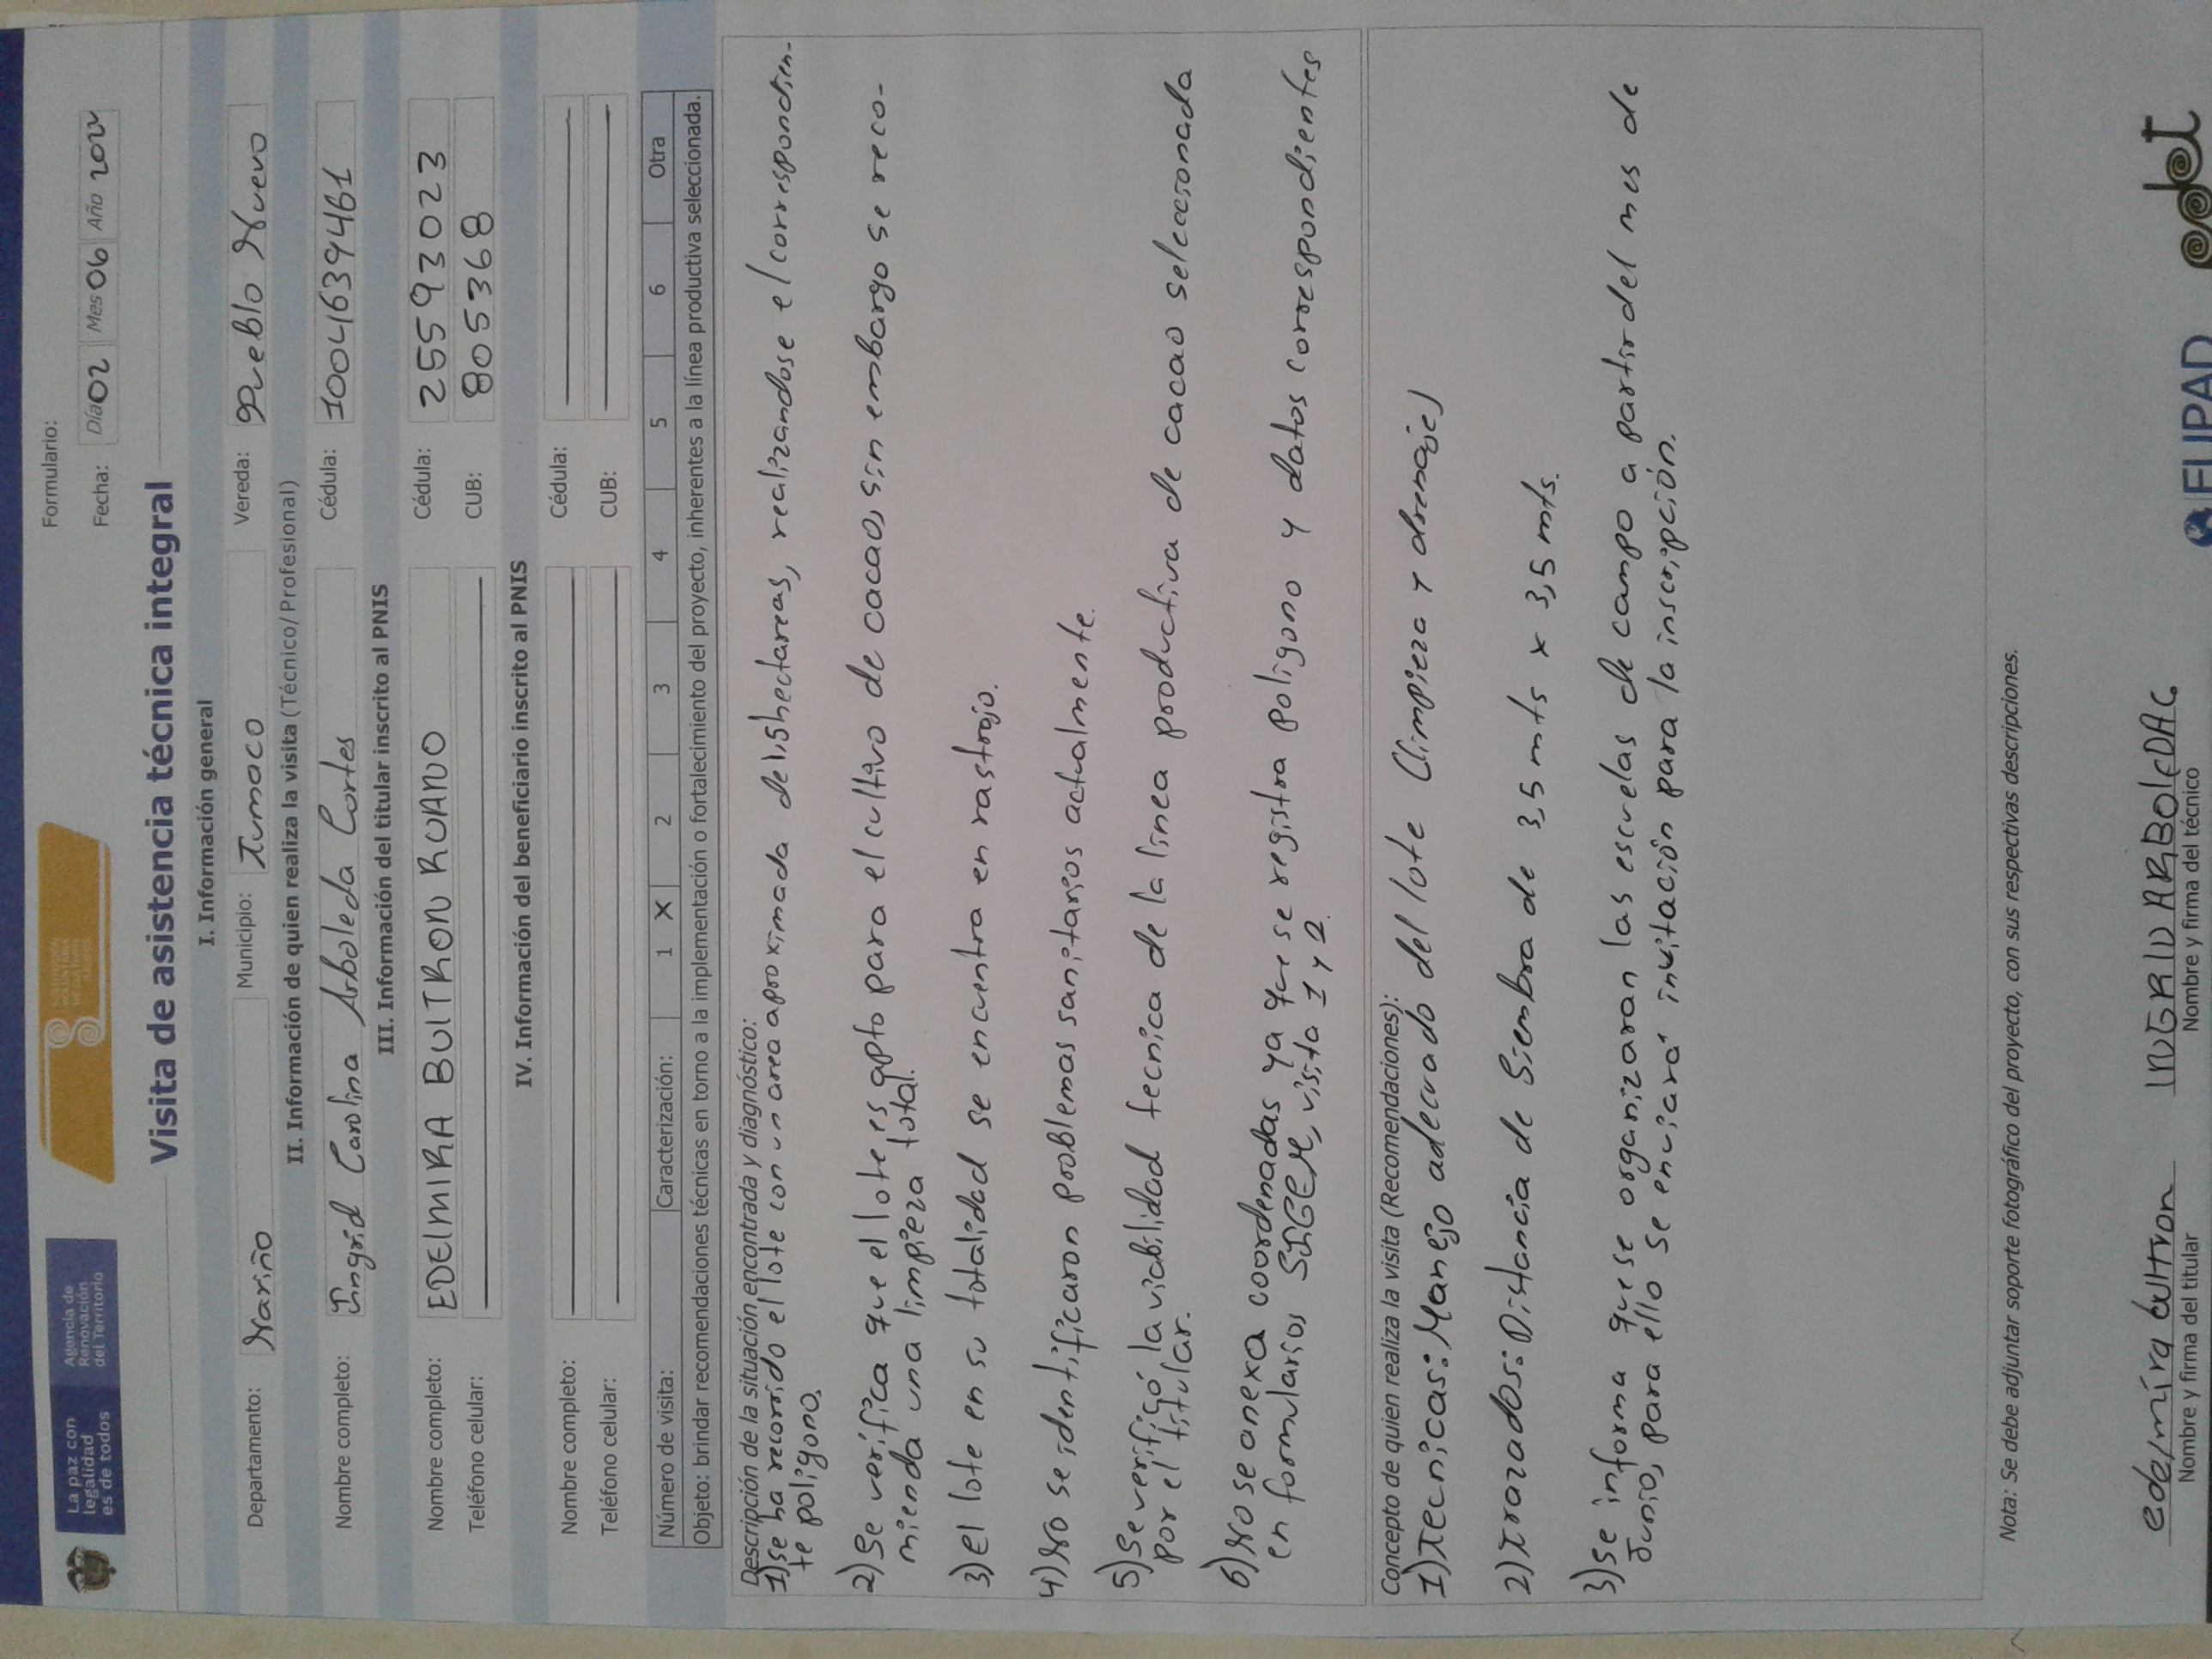 La paz con
legalidad
es de todos
Agencia de
Renovación
del Territorio
Formulario:
Fecha: Día 02 Mes 06 Año 2022
Visita de asistencia técnica integral
I. Información general
Departamento: Nariño Municipio: Tumaco Vereda: Pueblo Nuevo
II. Información de quien realiza la visita (Técnico/ Profesional)
Nombre completo: Ingrid Carolina Arboleda Cortes Cédula: 1004639461
III. Información del titular inscrito al PNIS
Nombre completo: EDELMIRA BULTRON RUANO Cédula: 25593023
Teléfono celular: CUB: 805368
IV. Información del beneficiario inscrito al PNIS
Nombre completo: Cédula:
Teléfono celular: CUB:
Número de visita: Caracterización: 1 X 2 3 4 5 6 Otra
Objeto: brindar recomendaciones técnicas en torno a la implementación o fortalecimiento del proyecto, inherentes a la línea productiva seleccionada.
Descripción de la situación encontrada y diagnóstico:
1) se ha recorrido el lote con un area aproximada de 1,5 hectareas, realizandose el correspondien-
te poligono.
2) Se verifica que el lote es apto para el cultivo de cacao, sin embargo se reco-
mienda una limpieza total.
3) el lote en su totalidad se encuentra en rastrojo.
4) No se identificaron problemas sanitarios actualmente.
5) Se verificó la viabilidad tecnica de la linea productiva de cacao seleccionada
por el titular.
6) No se anexa coordenadas ya que se registra poligono y datos correspondientes
en formularios SIGER, visita 1 y 2.
Concepto de quien realiza la visita (Recomendaciones):
1) Tecnicas: Manejo adecuado del lote (limpieza y drenaje)
2) Trazados: Distancia de Siembra de 3,5 mts x 3,5 mts.
3) Se informa que se organizaran las escuelas de campo a partir del mes de
Junio, para ello se enviará invitación para la inscripción.
Nota: Se debe adjuntar soporte fotográfico del proyecto, con sus respectivas descripciones.
edelmira bultron INGRID ARBOLEDA C.
Nombre y firma del titular Nombre y firma del técnico
FUPAD